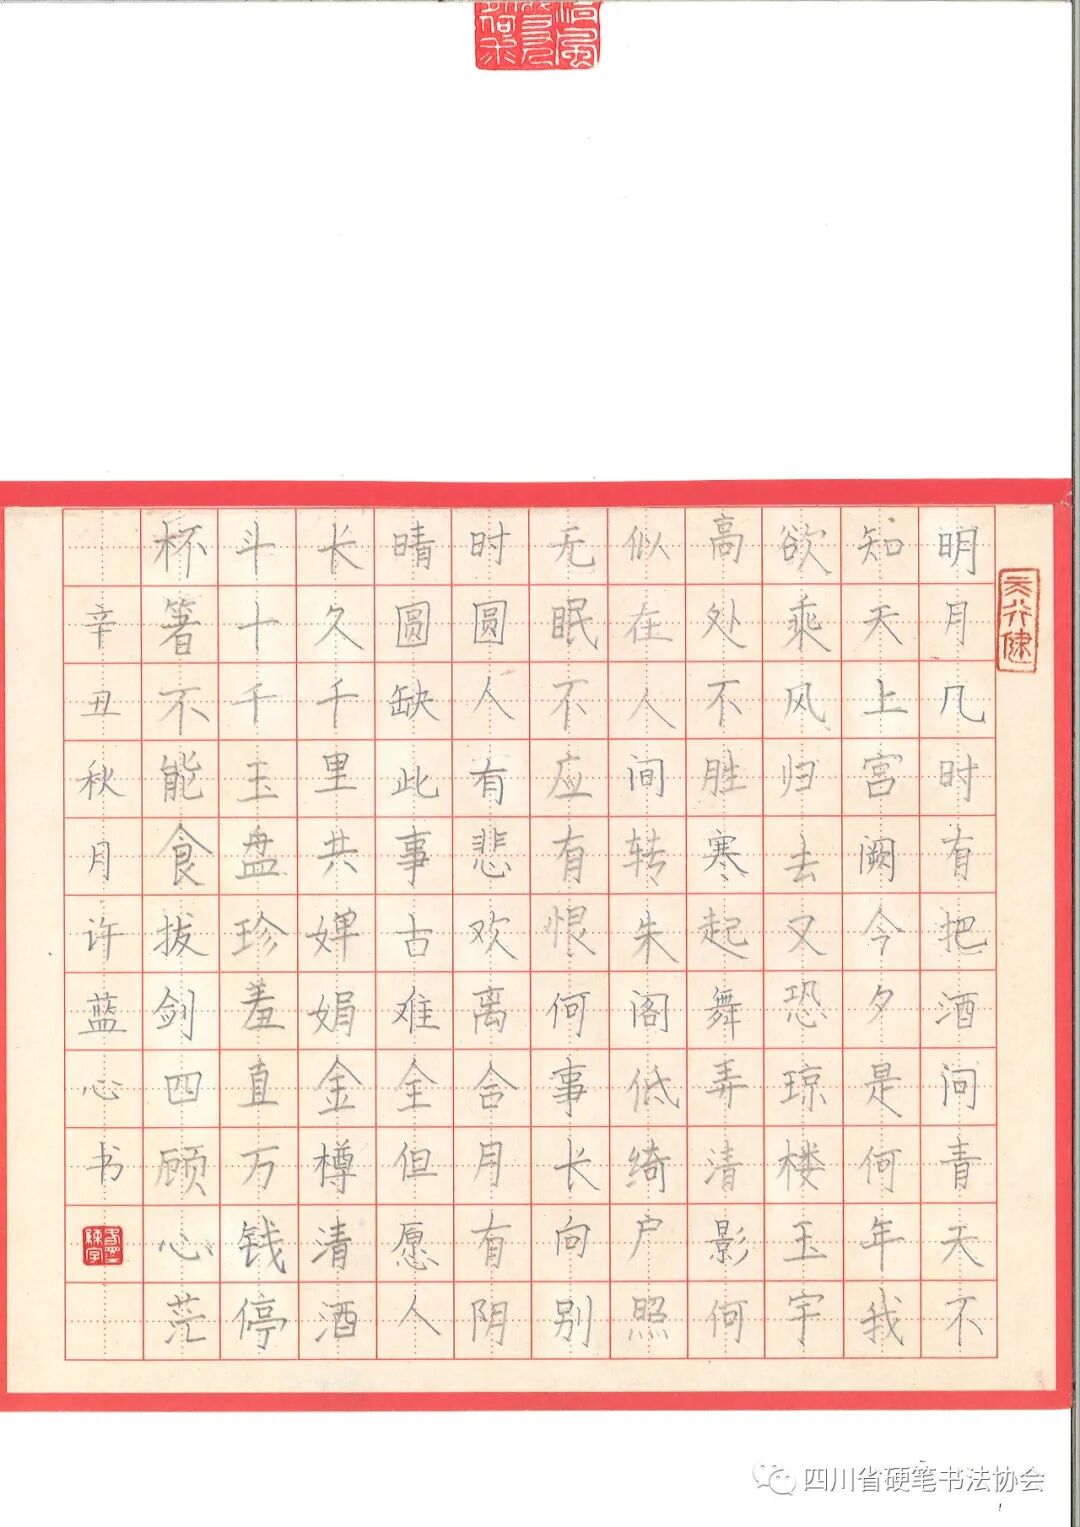 天行健
明月几时有把酒问青天不
知天上宫阙今夕是何年我
欲乘风归去又恐琼楼玉宇
高处不胜寒起舞弄清影何
似在人间转朱阁低绮户照
无眠不应有恨何事长向别
时圆人有悲欢离合月有阴
晴圆缺此事古难全但愿人
长久千里共婵娟金樽清酒
斗十千玉盘珍羞直万钱停
杯箸不能食拔剑四顾心茫
辛丑秋月许蓝心书
四川省硬笔书法协会